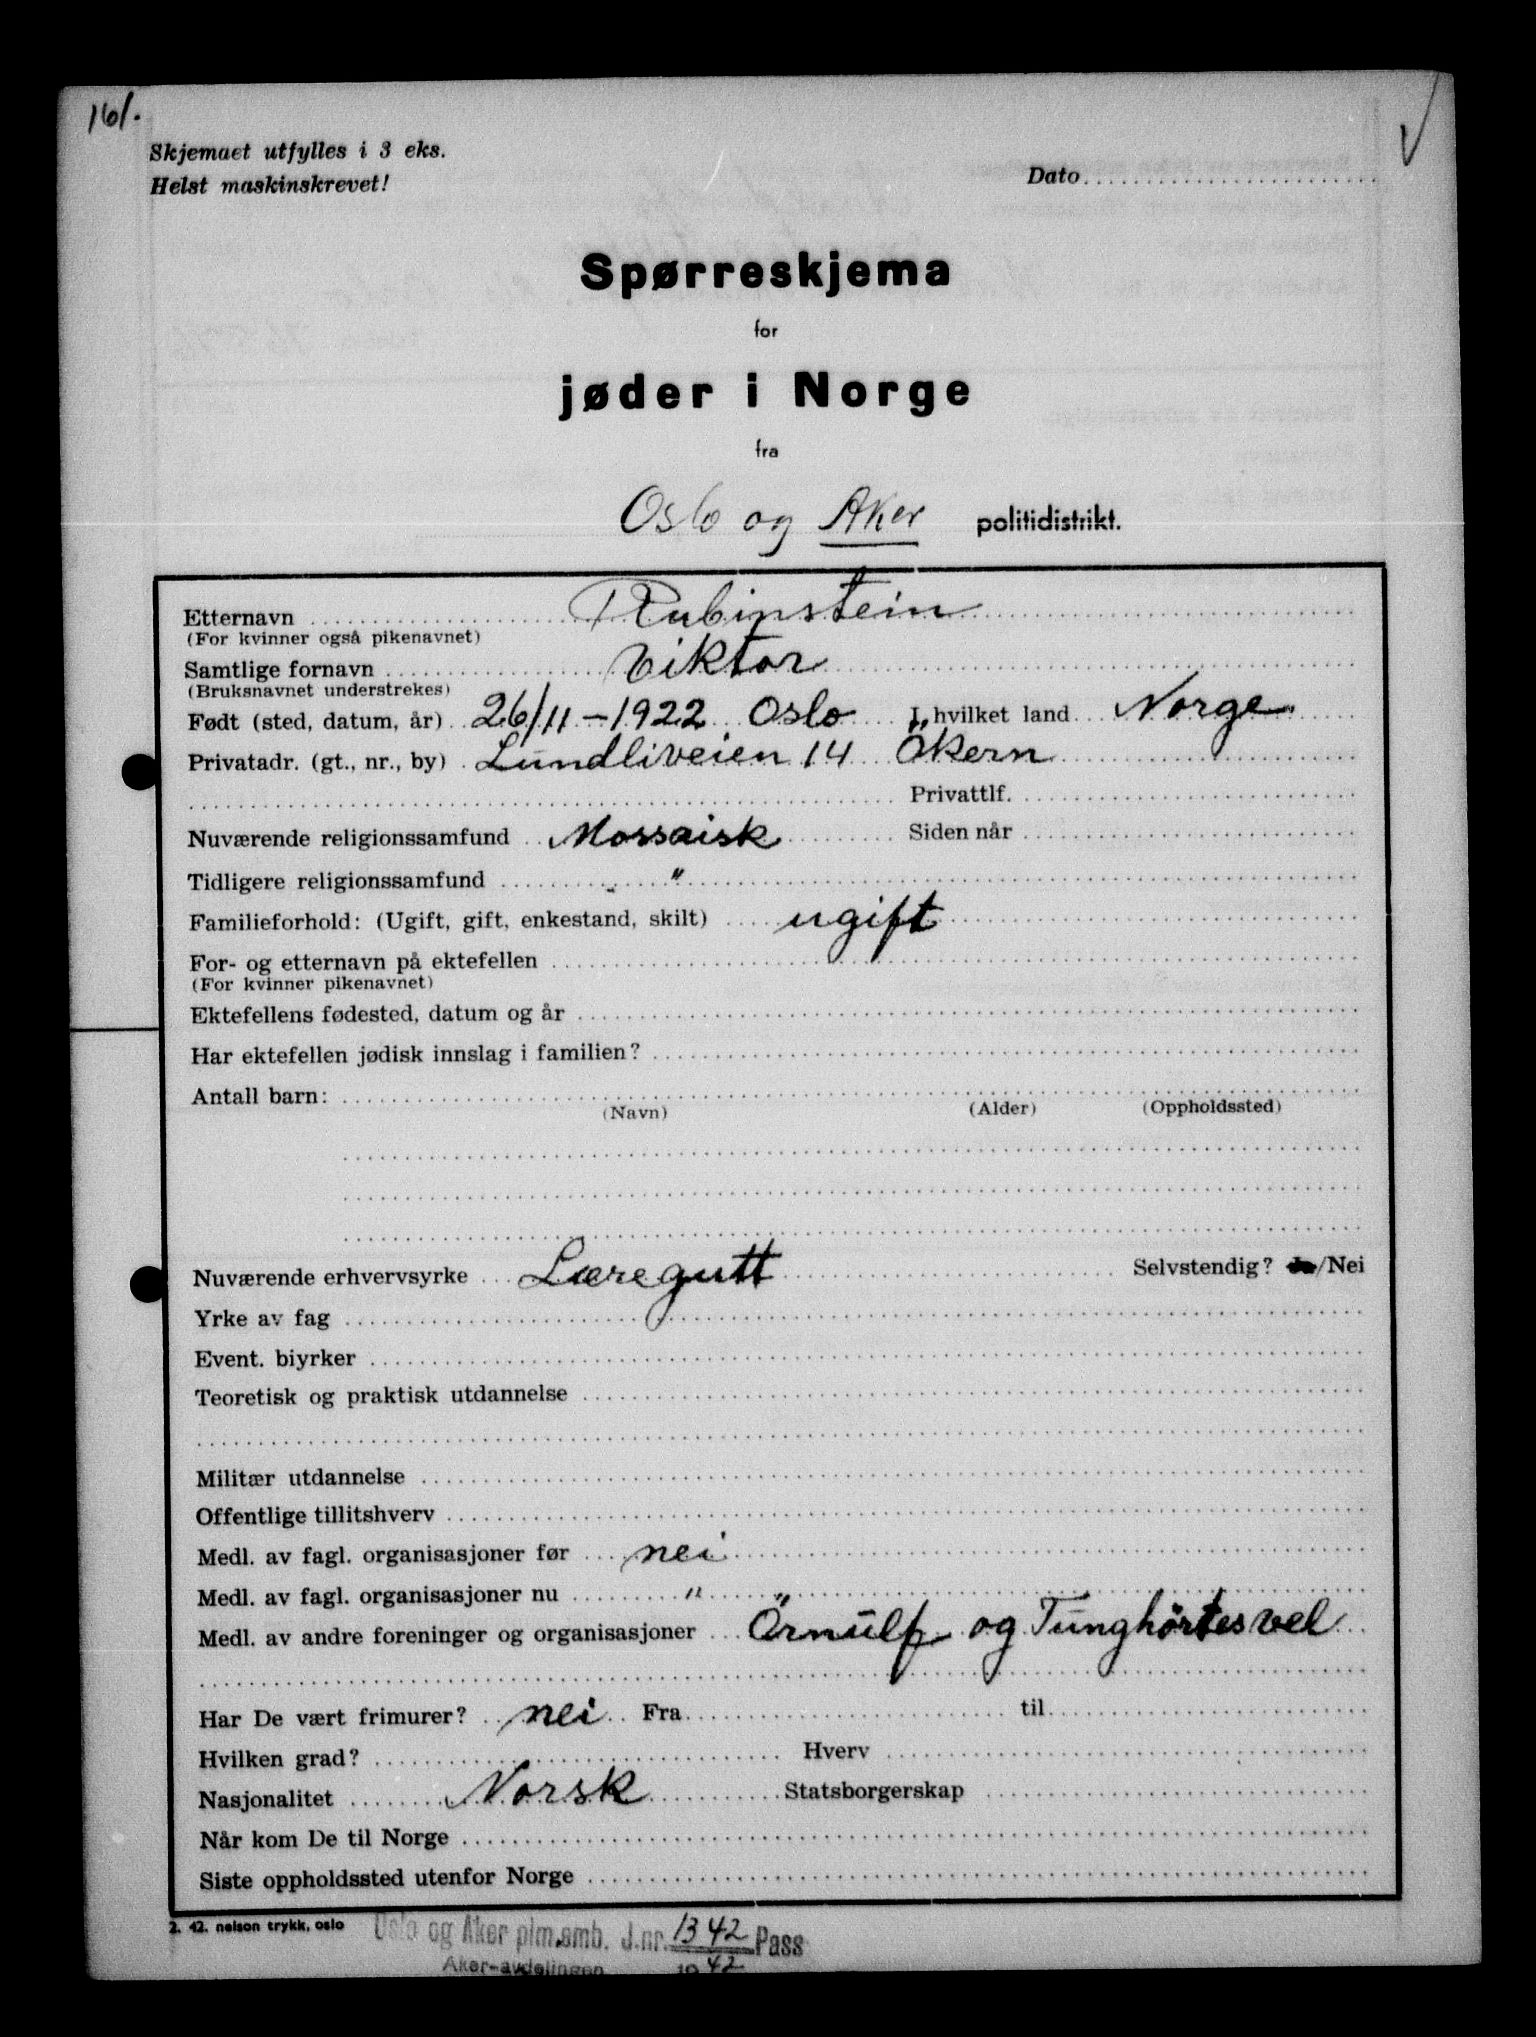 161.
Skjemaet utfylles i 3 eks.
Helst maskinskrevet!
Dato
Spørreskjema
for
jøder i Norge
fra
Oslo og Aker politidistrikt.
Etternavn Rubinstein
(For kvinner også pikenavnet)
Samtlige fornavn Viktor
(Bruksnavnet understrekes)
Født (sted, datum, år) 26/11 - 1922 Oslo I hvilket land Norge
Privatadr. (gt., nr., by) Lundliveien 14 Økern
Privattlf.
Nuværende religionssamfund Mossaisk Siden når
Tidligere religionssamfund "
Familieforhold: (Ugift, gift, enkestand, skilt) ugift
For- og etternavn på ektefellen
(For kvinner pikenavnet)
Ektefellens fødested, datum og år
Har ektefellen jødisk innslag i familien?
Antall barn:
(Navn) (Alder) (Oppholdssted)
Nuværende erhvervsyrke Læregutt Selvstendig? Ja/Nei
Yrke av fag
Event. biyrker
Teoretisk og praktisk utdannelse
Militær utdannelse
Offentlige tillitshverv
Medl. av fagl. organisasjoner før nei
Medl. av fagl. organisasjoner nu "
Medl. av andre foreninger og organisasjoner Örnulf og Tunghörtes vel
Har De vært frimurer? nei Fra til
Hvilken grad? Hverv
Nasjonalitet Norsk Statsborgerskap
Når kom De til Norge
Siste oppholdssted utenfor Norge
2. 42. nelson trykk, oslo
Oslo og Aker plm.emb. J.nr. 1342 Pass
Aker-avdelingen 1942